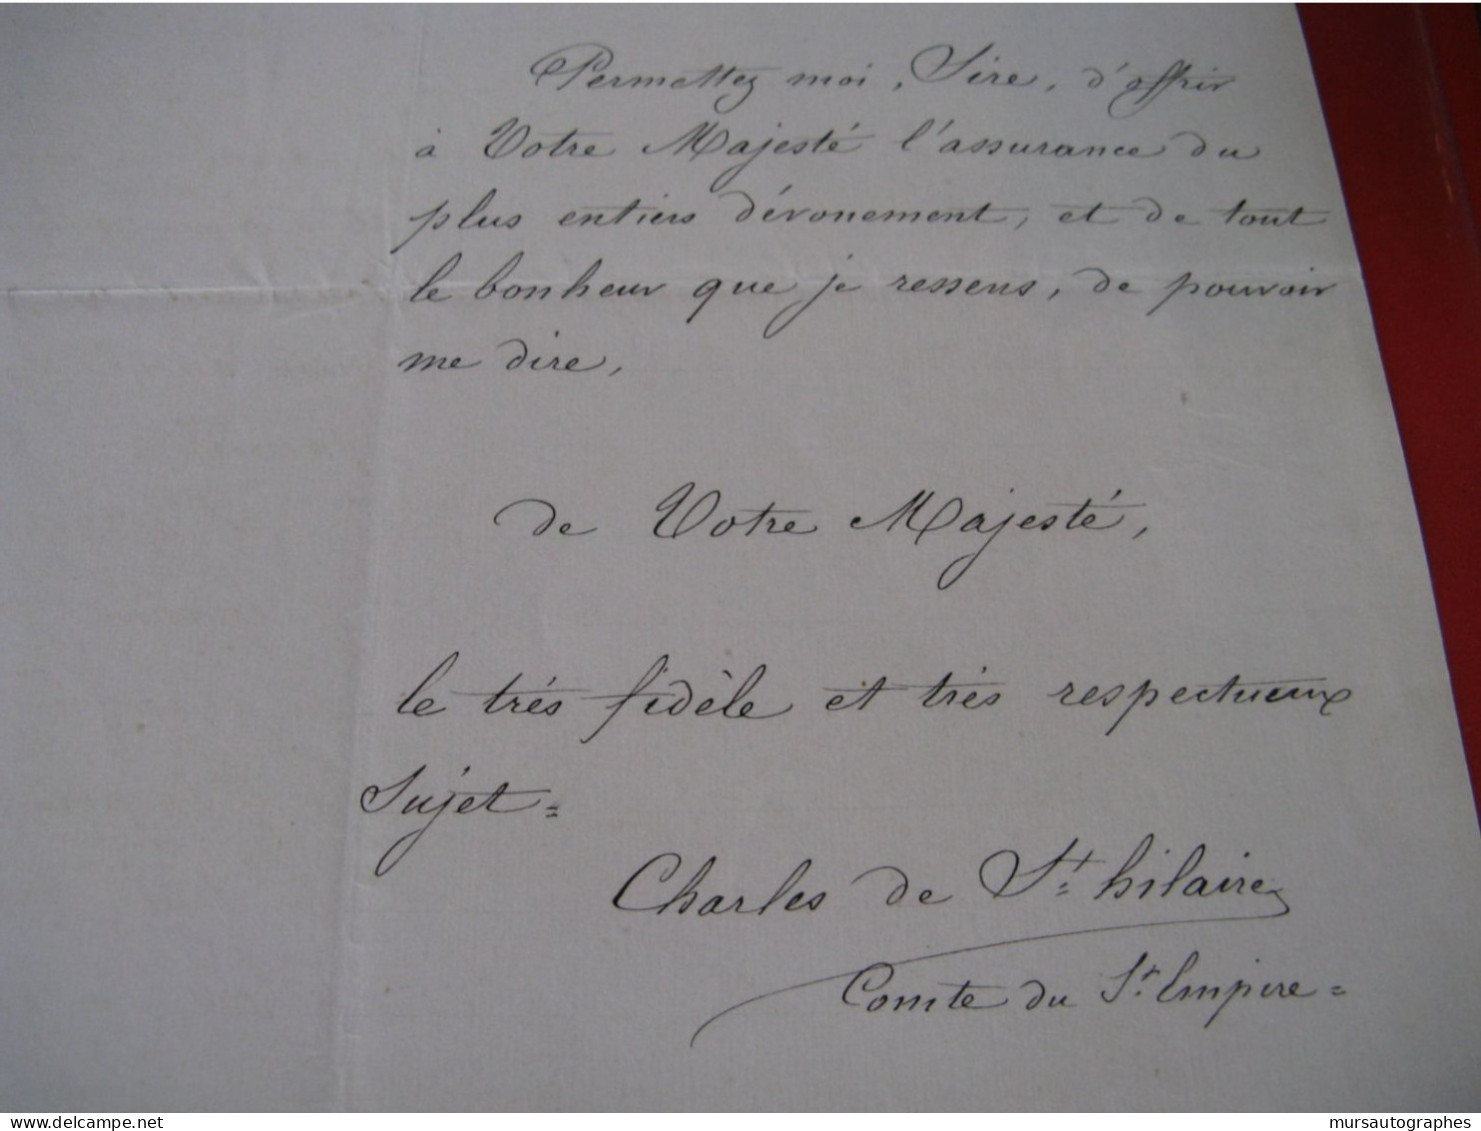 Permettez moi, Sire, d'offrir
à Votre Majesté l'assurance du
plus entiers dévouement, et de tout
le bonheur que je ressens, de pouvoir
me dire,
de Votre Majesté,
le trés fidèle et trés respectueux
Sujet =
Charles de St. hilaire
Comte du St. Empire =
delcampe.net
mursautographes